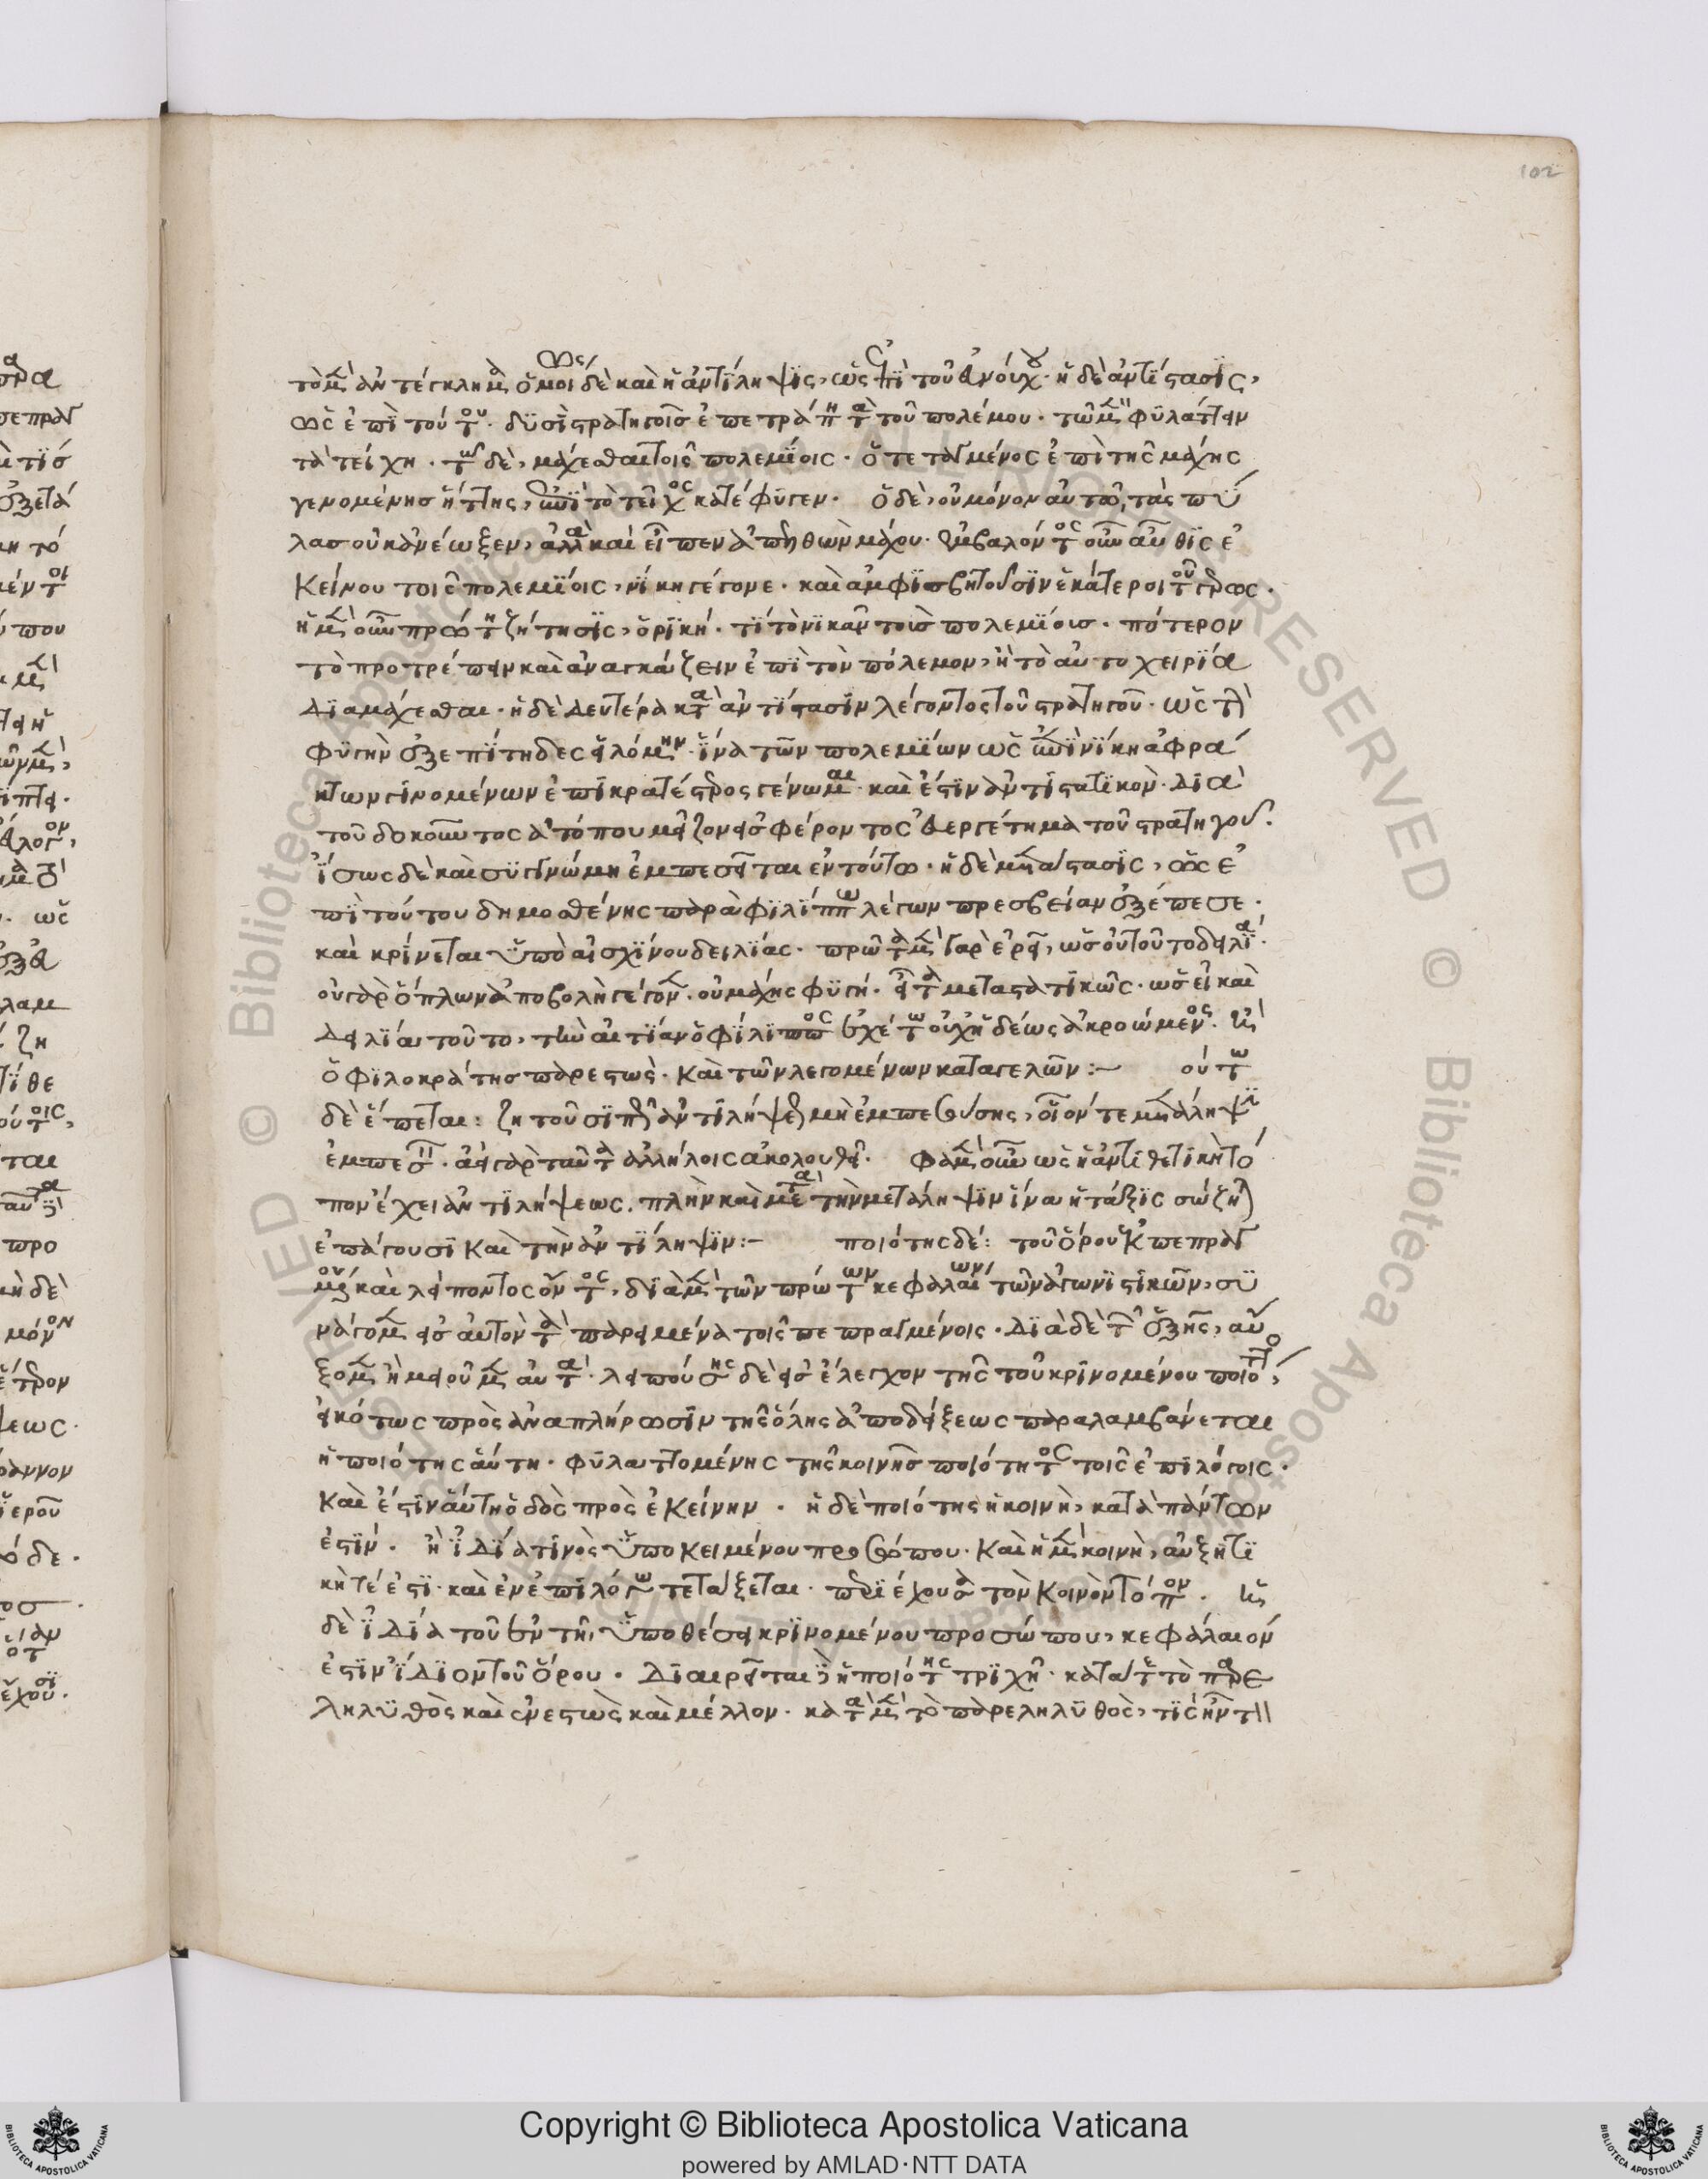 102
τὸ μὲν ἀντέγκλημα ὅμοι δὲ καὶ ἡ ἀντίληψις, ὡς ἐπὶ τοῦ εὐνούχου. ἡ δὲ ἀντίστασις,
ὡς ἐπὶ τούτου. δυσὶ στρατηγοῖς ἐπετράπη τὰ τοῦ πολέμου. τῶ μὲν φυλάττειν
τὰ τείχη. τῶ δὲ, μάχεσθαι τοῖς πολεμίοις. ὁ τεταγμένος ἐπὶ τῆς μάχης
γενομένης ἥττης, ἐπὶ τὸ τεῖχος κατέφυγεν. ὁ δὲ, οὐ μόνον αὐτῶ τὰς πύ
λας οὐκ ἀνέωξεν, ἀλλὰ καὶ εἶπεν ἀπελθὼν μάχου. ἐμβαλόντος οὖν αὖθις ἐ
κείνου τοῖς πολεμίοις, νίκη γέγονε. καὶ ἀμφισβητοῦσιν ἑκάτεροι τοῦ γέρως.
ἡ μὲν οὖν πρώτη ζήτησις, ὁρική. τί τὸ νικᾶν τοὺς πολεμίους. πότερον
τὸ προτρέπειν καὶ ἀναγκάζειν ἐπὶ τὸν πόλεμον, ἢ τὸ αὐτοχειρία
διαμάχεσθαι. ἡ δὲ δευτέρα κατὰ ἀντίστασιν λέγοντος τοῦ στρατηγοῦ. ὡς τὴν
φυγὴν ἐξεπίτηδες εἱλόμην. ἵνα τῶν πολεμίων ὡς ἐπὶ νίκη ἀφρά
κτων γινομένων ἐπικρατέστερος γένωμαι. καὶ ἔστιν ἀντιστατικὸν. διὰ
τοῦ δοκοῦντος ἀτόπου μεῖζον εἰσφέροντος εὐεργέτημα τοῦ στρατηγοῦ.
ἴσως δὲ καὶ συγγνώμη ἐμπεσεῖται ἐν τούτω. ἡ δὲ μετάστασις, ὡς ἐ
πὶ τούτου δημοσθένης παρὰ φιλίππω λέγων πρεσβείαν ἐξέπεσε.
καὶ κρίνεται ὑπὸ αἰσχίνου δειλίας. πρῶτα μὲν γὰρ ἐρεῖ, ὡς οὐ τοῦτο δειλία.
οὐ γὰρ ὅπλων ἀποβολὴ γέγονεν. οὐ μάχης φυγή. εἶτα μεταστατικῶς. ὡς εἰ καὶ
δειλία τοῦτο, τὴν αἰτίαν ὁ φίλιππος ἐχέτω οὐχ ἡδέως ἀκροώμενος. καὶ
ὁ φιλοκράτης παρεστὼς. καὶ τῶν λεγομένων καταγελῶν :— οὕτω
δὲ ἕπεται: ζητοῦσι πῶς ἀντιλήψεως μὴ ἐμπεσούσης, οἷόν τε μετάληψιν
ἐμπεσεῖν. ἀεὶ γὰρ ταῦτα ἀλλήλοις ἀκολουθεῖ. φαμὲν οὖν ὡς ἡ ἀντιθετικὴ τό
πον ἔχει ἀντιλήψεως. πλὴν καὶ μετὰ τὴν μετάληψιν ἵνα ἡ τάξις σώζηται
ἐπάγουσι καὶ τὴν ἀντίληψιν :— ποιότης δέ: τοῦ ὅρου ἐκ πεπραγ
μένου καὶ λείποντος ὄντος, διὰ μὲν τῶν πρώτων κεφαλαίων τῶν ἀγωνιστικῶν, συ
νάγομεν εἰς αὐτὸν τὰ παρειμένα τοῖς πεπραγμένοις. διὰ δὲ τῆς ἑξῆς, αὔ
ξομεν ἢ μειοῦμεν αὐτά. λειπούσης δὲ εἰς ἔλεγχον τῆς τοῦ κρινομένου ποιότητος,
εἰκότως πρὸς ἀναπλήρωσιν τῆς ὅλης ἀποδείξεως παραλαμβάνεται
ἡ ποιότης αὕτη. φυλαττομένης τῆς κοινῆς ποιότητος τοῖς ἐπιλόγοις.
καὶ ἔστιν αὕτη ὁδὸς πρὸς ἐκείνην. ἡ δὲ ποιότης ἡ κοινὴ, κατὰ πάντων
ἐστίν. ἢ ἰδία τινὸς ὑποκειμένου προσώπου. καὶ ἡ μὲν κοινὴ, αὐξητι
κή τέ ἐστι. καὶ ἐν ἐπιλόγω τετάξεται. περιέχουσα τὸν κοινὸν τόπον. ἡ
δὲ ἰδία τοῦ ἐν τῆ ὑποθέσει κρινομένου προσώπου, κεφάλαιόν
ἐστιν ἴδιον τοῦ ὅρου. διαιρεῖται δὲ ἡ ποιότης τριχῆ. κατά τε τὸ παρε
ληλυθὸς καὶ ἐνεστὼς καὶ μέλλον. κατὰ μὲν τὸ παρεληλυθὸς, τίς ἦν τ
Copyright © Biblioteca Apostolica Vaticana
powered by AMLAD·NTT DATA